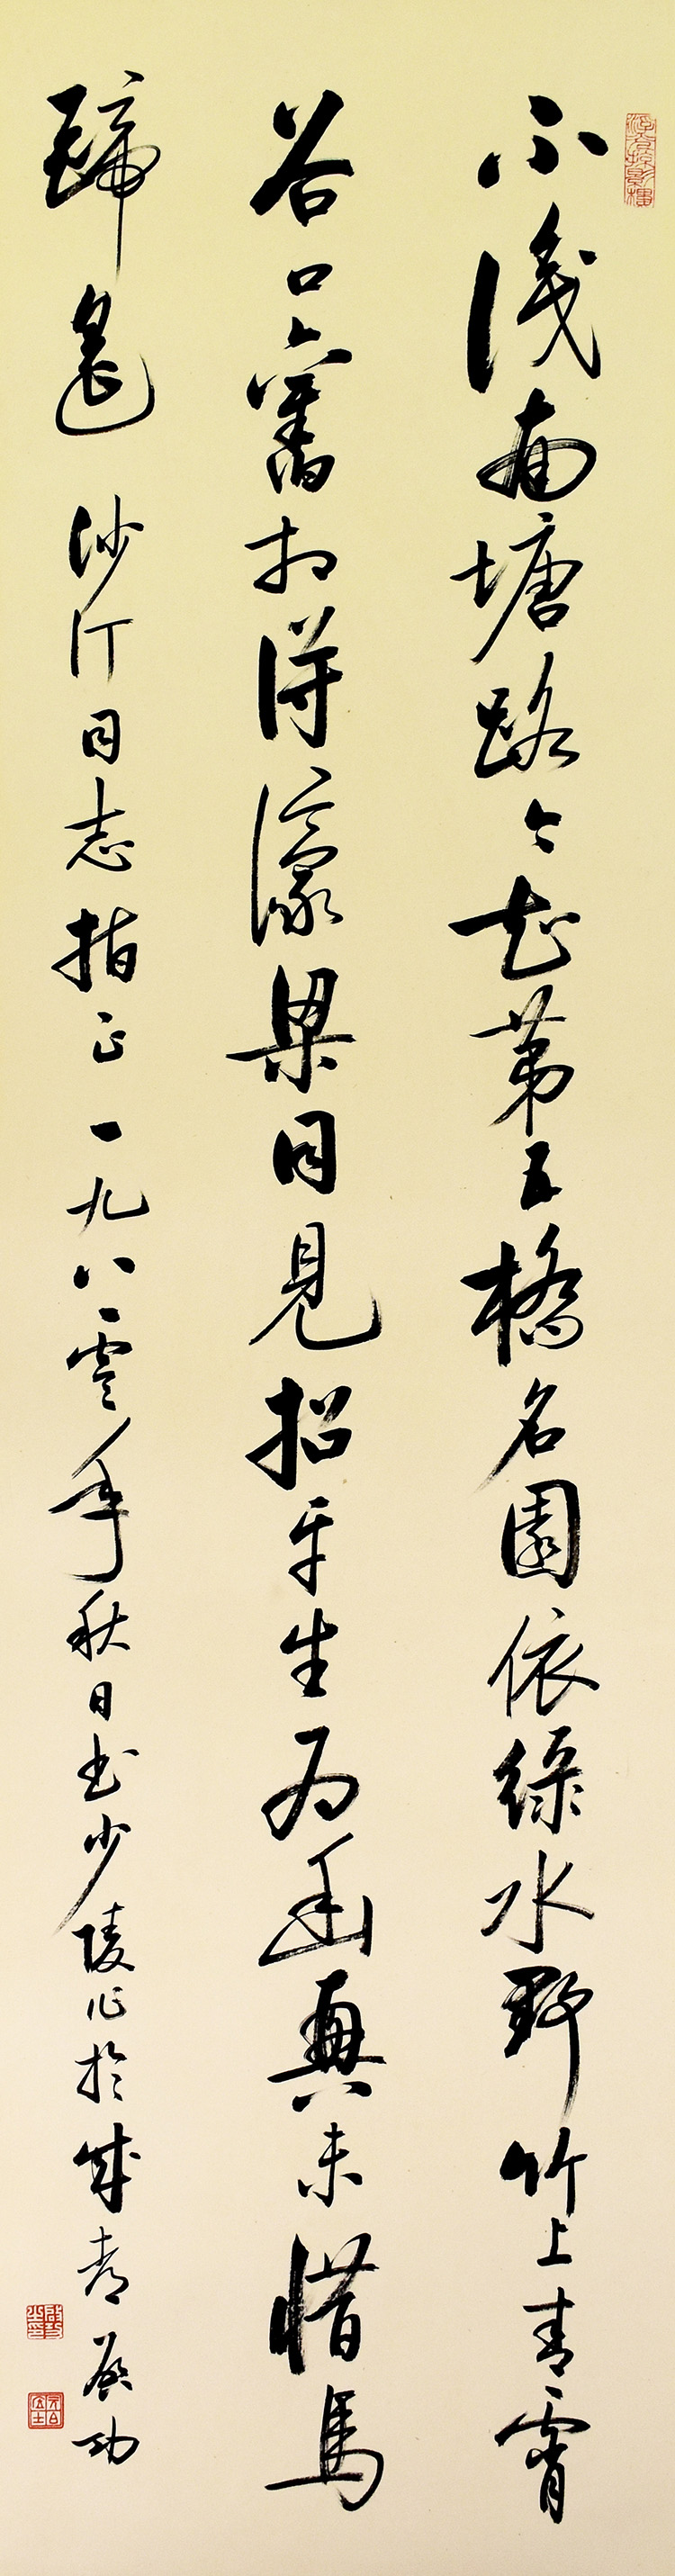 不識南塘路今知第五橋名園依綠水野竹上青霄
谷口舊相得濠梁同見招平生為幽興未惜馬
蹄遙 沙汀同志指正一九八零年秋日書少陵作於成都啟功